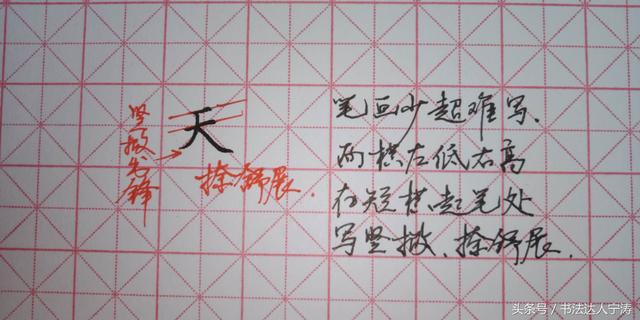 竖撇出锋
天
捺舒展.
笔画少超难写、
两横左低右高
在短横起笔处
写竖撇、捺舒展.
头条号/书法达人宁涛